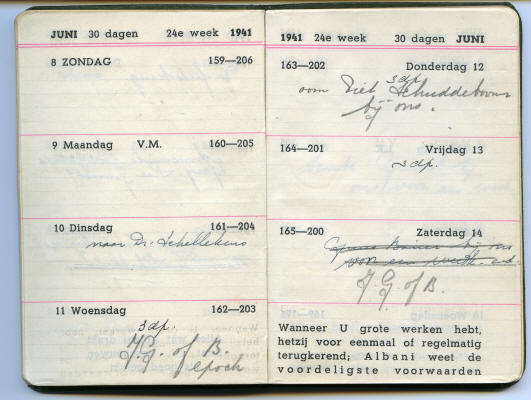 JUNI 30 dagen 24e week 1941
8 ZONDAG 159—206
9 Maandag V.M. 160—205
10 Dinsdag 161—204
naar Dr. Schellekens
11 Woensdag 162—203
3 dp.
J.G. of B.
epoch
1941 24e week 30 dagen JUNI
163—202 Donderdag 12
3 dp.
oom Piet Schuddeboom
bij ons.
164—201 Vrijdag 13
3 dp.
165—200 Zaterdag 14
bij ons
voor een week
J.G. of B.
Wanneer U grote werken hebt,
hetzij voor eenmaal of regelmatig
terugkerend; Albani weet de
voordeligste voorwaarden